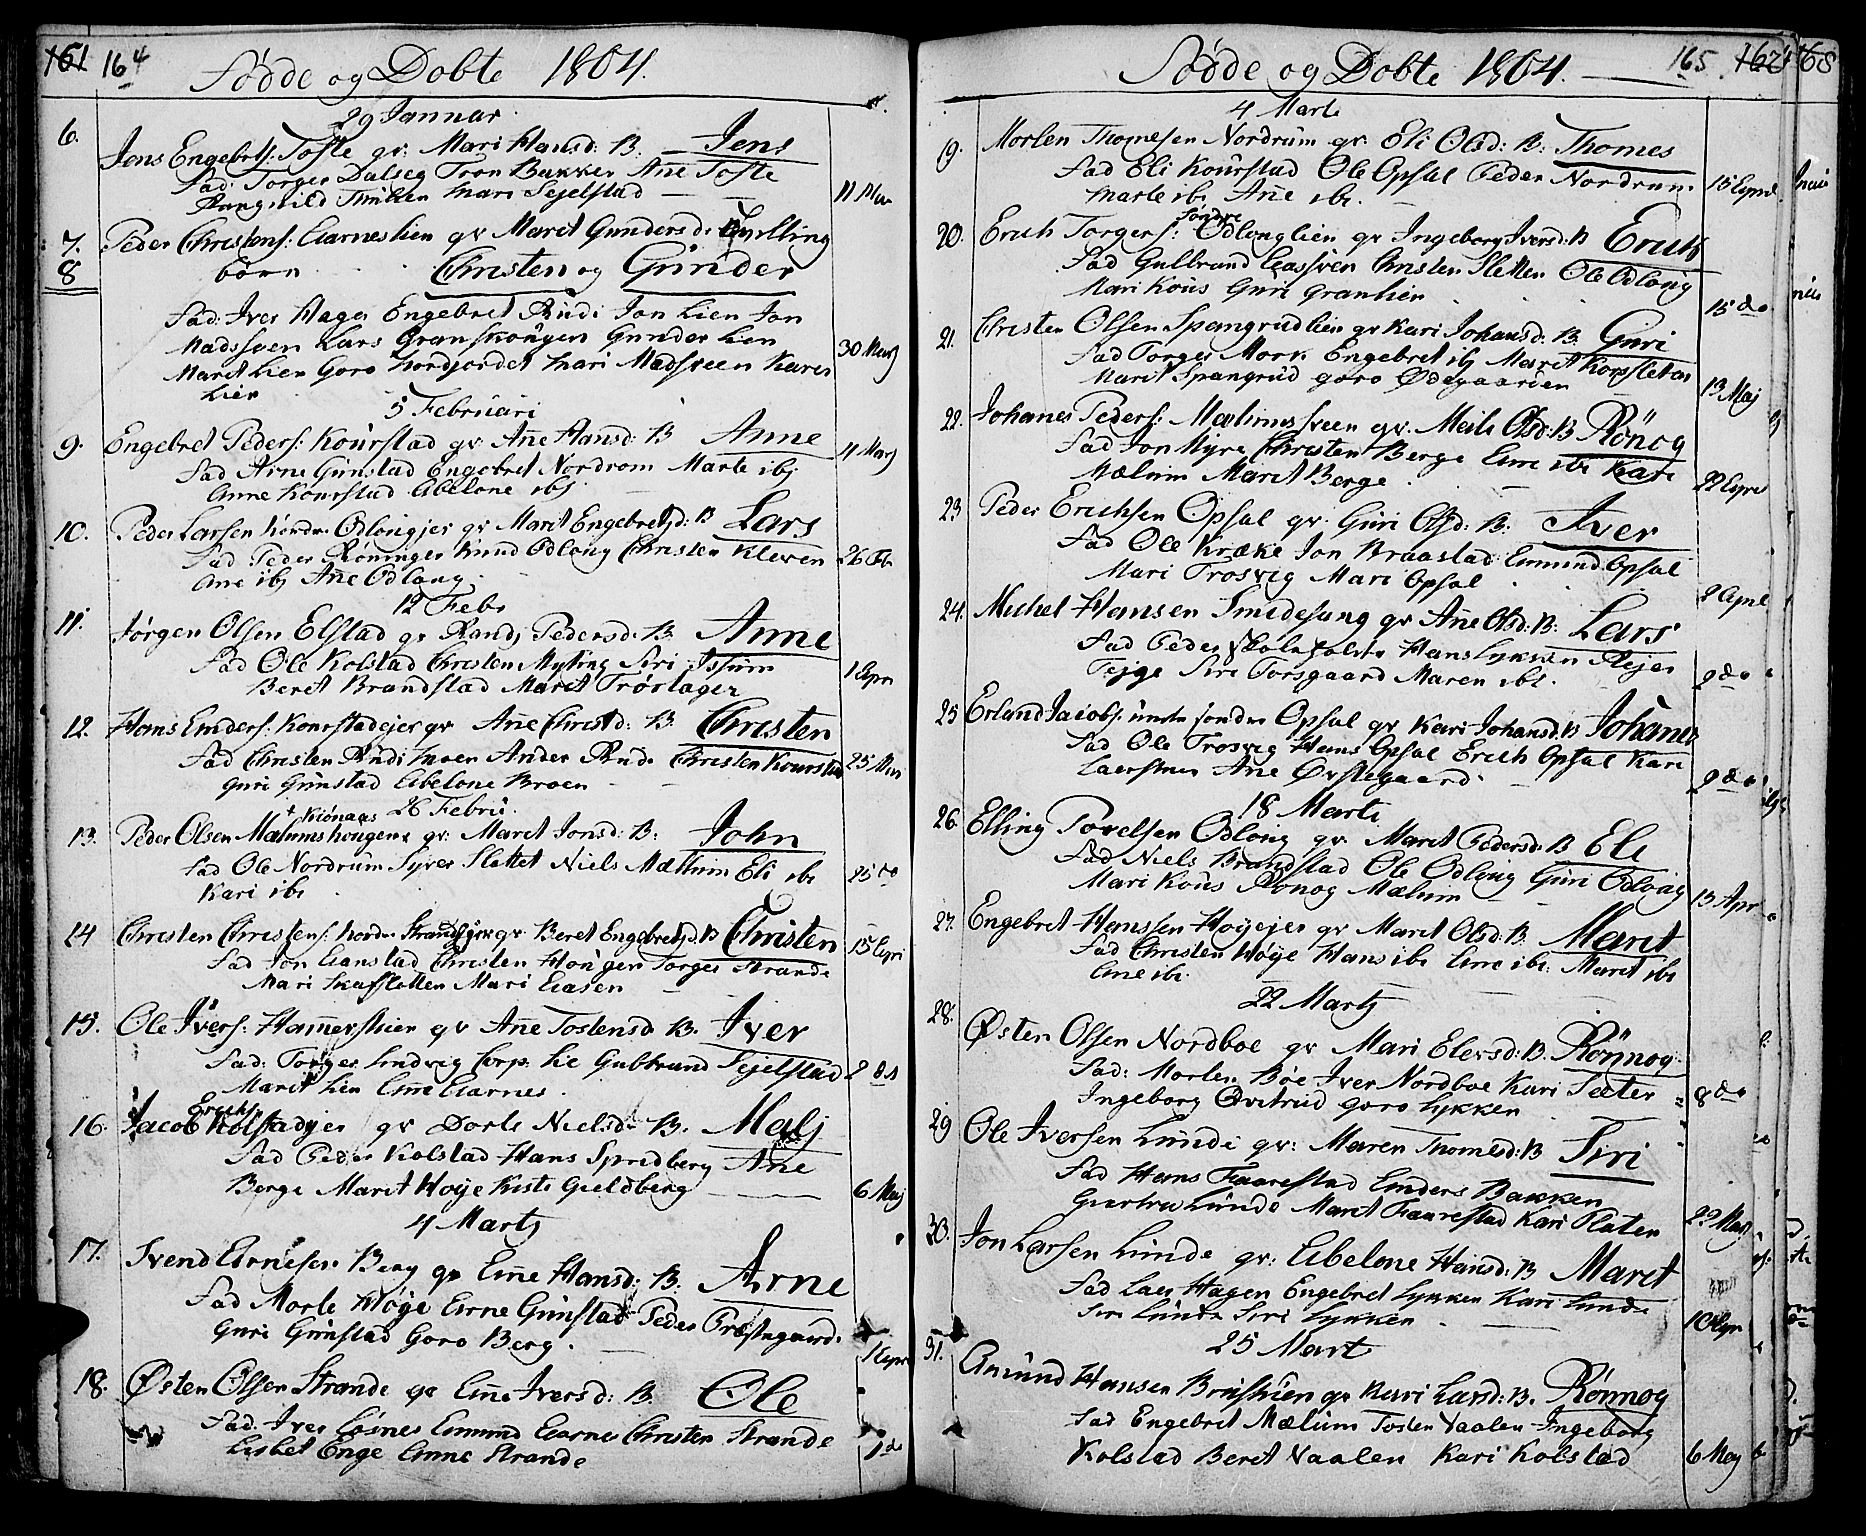 161 164
Fødde og Døbte 1804.
29 Januar
6. Jens Engebrets: Tofte gv: Mari Hansd: B. Jens
Fad: Torger Dalseg Tron Bakken Ane Tofte
Rangnild Mari Sejelstad
11 Mar
7. Peder Christens: Aarneslien gv Marit Gundersd: Tvilling
8 børn Christen og Gunder
Fad: Iver Hager Engebret Rudi Jon Lien Jon
Madssven Lars Granskougen Gunder Lien
Marit Lien Goro Nordjordet Mari Madsveen Karen
Lien
30 Marj
5 Februari
9. Engebret Peders: Kourstad gv Ane Hansd: B Anne
4 Marj
Fad Arne Gunstad Engebret Nordrom Marte ibj
Anne Kourstad Abelone ibj
10. Peder Larsen Nordre Odlougjer gv Marit Engebretsd: B Lars
Fad Peder Røninger Knud Odloug Christen Kleven 26 Feb
Ane ibj Ane Odloug
12 Febr
11. Jørgen Olsen Elstad gv Randj Pedersd: B Anne
Fad Ole Kolstad Christen Myting Siri Issum
Beret Brandstad Marit Trøstager
1 Apri
12. Hans Anders: Kourstadejer gv Ane Christd: B. Christen
Fad Christen Rudi Moen Ander Rudi Christen Kourstad 25 Mar
Guri Gunstad Abelone Broen
26 Febru.
Kiønaas
13. Peder Olsen Mælumshougen gv: Marit Jonsd: B: John
Fad Ole Nordrum Syver Slettet Niels Mællum Eli ibi 25 do
Kari ibi
14 Christen Christens: Nordre Strandejer gv: Beret Engebretsd: B Christen 15 Apri
Fad Jon Aanstad Christen Hougen Torger Strande
Mari Skafletten Mari Aasen
15. Ole Ivers: Hamershien gv Ane Tostensd B. Iver
Fad: Torger Lindvig Corp. Lie Gulbrand Sejelstad 2 do
Marit Lien Ane Aarnes
Erichs:
16. Jacob Kolstadejer gv Dorte Nielsd: B. Malj
Fad Peder Kolstad Hans Spredberg Ane
Berge Marit Høye Kisti Gieldberg 6 Maj
4 Martj
17. Svend Arnesen Berg gv Ane Hansd: B. Arne
Fad Morte Høye Arne Gunstad Peder Præstegaard:
Guri Gunstad Goro Berg.
1 Apri
18. Østen Olsen Strande gv Ane Iversd: B. Ole
Fad: Iver Losnes Amund Aarnes Christen Strande
Lisbet Enge Anne Strande 1 do
Fødde og Døbte 1804. 165 162 168
4 Marti
19. Morten Thomesen Nordrum gv: Eli Olsd: B: Thomes
Fad Eli Kourstad Ole Opsal Peder Nordrum 15 April
Marte ibi Ane ibi.
Søndre
20. Erich Torgers: Odlouglien gv Ingeborg Iversd: B Erich
Fad Gulbrand Aassven Christen Sletten Ole Odloug
Mari Kous Guri Granlien
15 do
21. Christen Olsen Spangrudlien gv Kari Johansd: B. Guri
Fad Torger Mork Engebret ibj Marit Korsletten
Marit Spangrud Goro Ødegaarden 13 Maj
22. Johanes Peders: Mælumsveen gv. Mari Olsd: B Rønog
Fad Jon Myre Christen Berge Ane ibi Kari
Mælum Marit Berge
22 Apri
23 Peder Erichsen Opsal gv. Guri Olsd: B: Iver
Fad Ole Kræke Jon Braastad Amund Opsal
Mari Trosvig Mari Opsal
2 April
24. Michel Hansen Smidesang gv Ane Olsd: B: Lars
Fad Peder Hans Lykken Rejer
Tejge Siri Torsgaard Maren ibi. 2 do
25 Erland Jacobs: søndre Opsal gv Kari Johansd: B Johanes
Fad Ole Trosvig Hans Opsal Erich Opsal Kari
Ane Øvstegaard 2 do
18 Marti
26 Elling Povelsen Odloug gv: Marit Pedersd: B Eli
Fad Niels Brandstad Ole Odloug Guri Odloug
Mari Kous Rønog Mælum
15 Apr
27. Engebret Hanssen Høyejer gv Marit Olsd: B. Marit
Fad Christen Høye Hans ibi Ane ibi: Marit ibi
Ane ibi.
22 Martj
28. Østen Olsen Nordboe gv Mari Elersd: B. Rønnog
Fad: Morten Bøe Iver Nordboe Kari Sæter
Ingeborg Qvitrud Goro Lykken 8 do
29 Ole Iversen Lunde gv: Maren Thomesd: B Siri
Fad Hans Faarestad Anders Bakken
Giertru Lunde Marit Faarestad Kari Platen 22 Maj
30. Jon Larsen Lunde gv: Abelone Hansd: B Marit
Fad Lars Hagen Engebret Lykken Kari Lunde
Siri Lunde Siri Lykken
10 Apr
25 Mart
31. Amund Hansen Bruslien gv Kari Larsd: B. Rønnog
Fad Engebret Mælum Tosten Vaalen Ingeborg
Kolstad Beret Vaalen Kari Kolstad 6 Maj